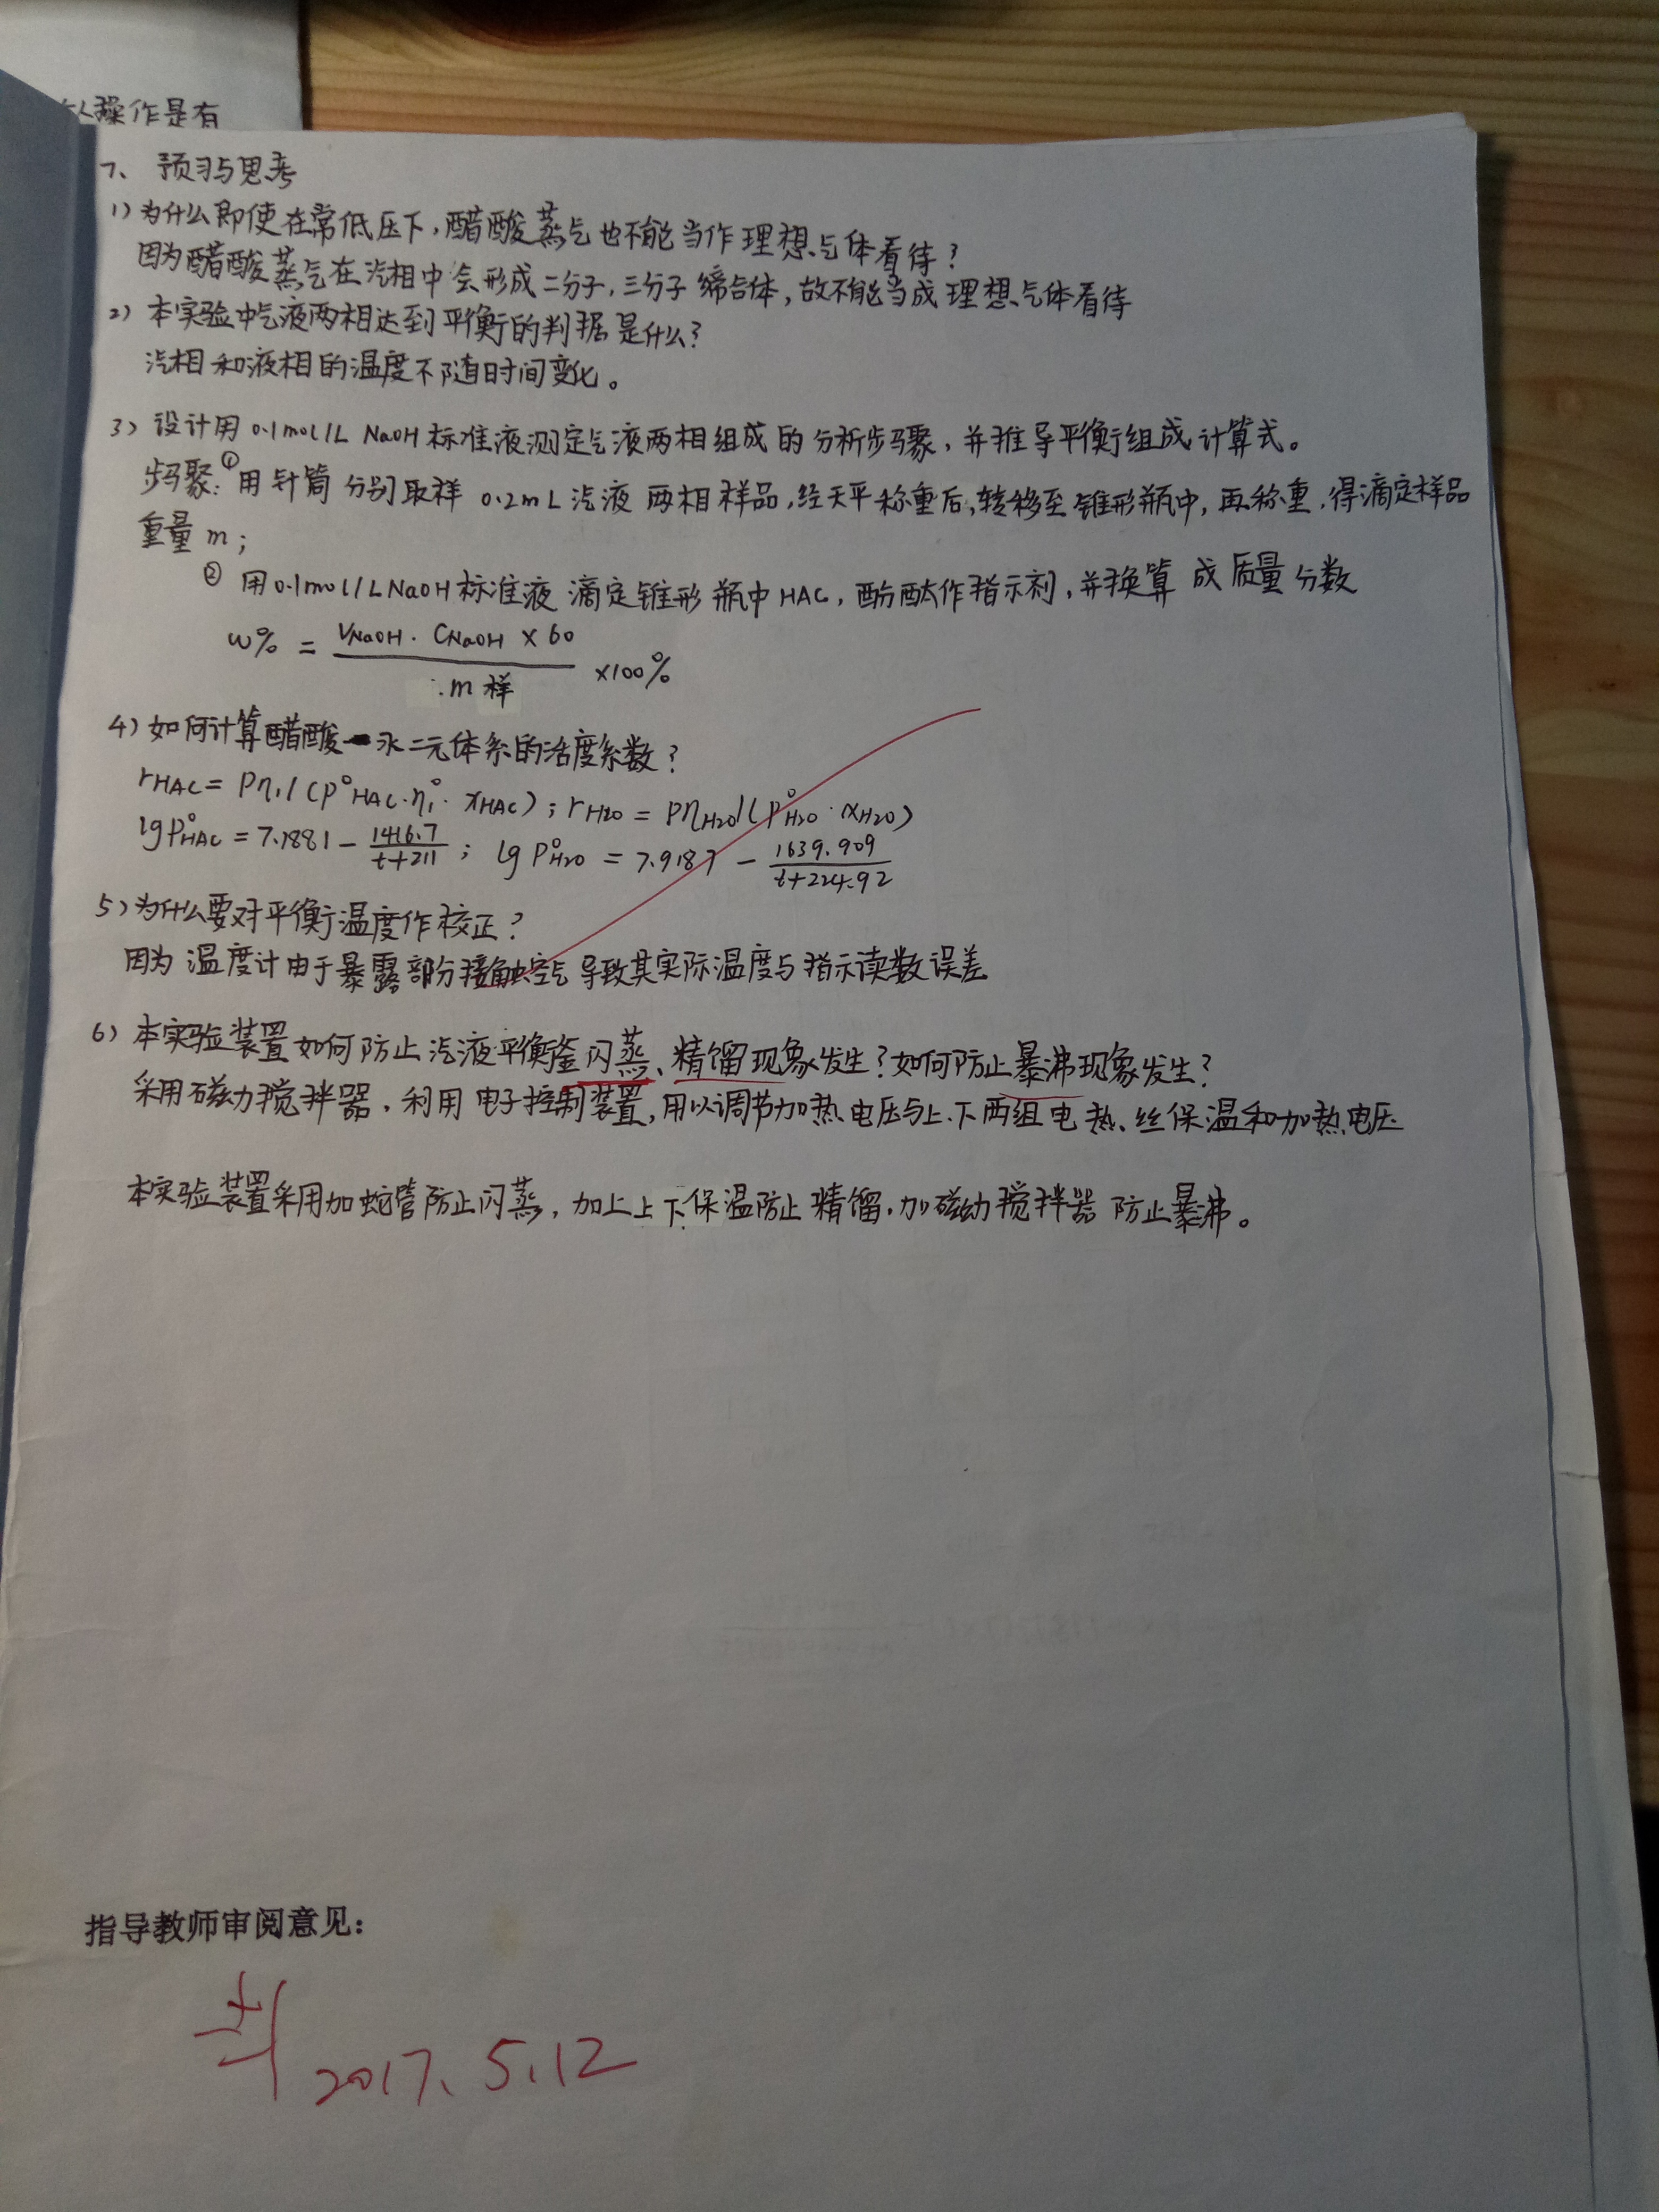 操作是有
7、预习与思考
1）为什么即使在常低压下，醋酸蒸气也不能当作理想气体看待？
因为醋酸蒸气在汽相中会形成二分子，三分子缔合体，故不能当成理想气体看待
2）本实验中气液两相达到平衡的判据是什么？
汽相和液相的温度不随时间变化。
3）设计用0.1mol/L NaOH标准液测定气液两相组成的分析步骤，并推导平衡组成计算式。
步骤：①用针筒分别取样0.2mL汽液两相样品，经天平称重后，转移至锥形瓶中，再称重，得滴定样品
重量m；
②用0.1mol/LNaOH标准液滴定锥形瓶中HAC，酚酞作指示剂，并换算成质量分数
w% = (VNaOH · CNaOH × 60) / m样 ×100%
4）如何计算醋酸-水二元体系的活度系数？
rHAC = Pη₁/(P°HAC·η₁°·xHAC)；rH2O = PηH2O/(P°H2O·xH2O)
lgP°HAC = 7.1881 - 1416.7/(t+211)；lgP°H2O = 7.9187 - 1639.909/(t+224.92)
5）为什么要对平衡温度作校正？
因为温度计由于暴露部分接触空气导致其实际温度与指示读数误差
6）本实验装置如何防止汽液平衡釜闪蒸、精馏现象发生？如何防止暴沸现象发生？
采用磁力搅拌器，利用电子控制装置，用以调节加热电压与上、下两组电热丝保温和加热电压
本实验装置采用加蛇管防止闪蒸，加上上下保温防止精馏，加磁动搅拌器防止暴沸。
指导教师审阅意见：
2017.5.12